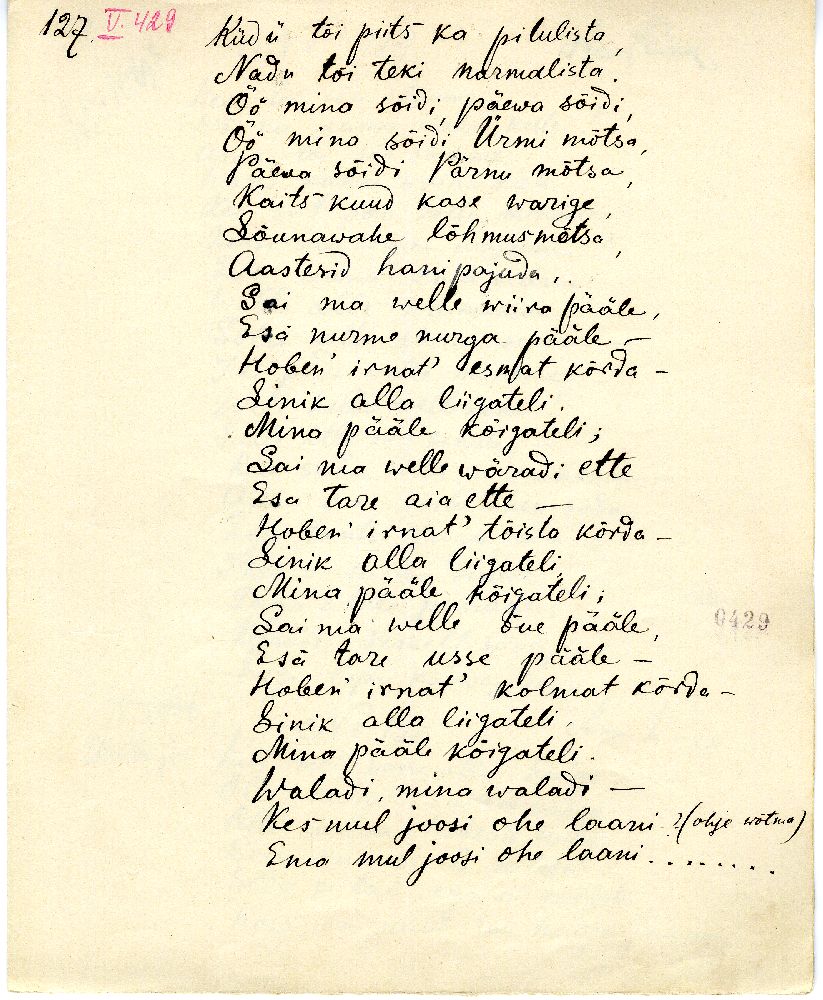 127. V. 429
Küdü tõi piits ka pilulista,
Nadu tõi teki narmalista.
Öö mina sõidi, päewa sõidi,
Öö mina sõidi Ürmi mõtsa,
Päewa sõidi Pärnu mõtsa,
Kaits kuud kase warige,
Sõunawahe lõhmusmõtsa,
Aasterid hanipajuda,
Sai ma welle wiira pääle,
Esä nurme nurga pääle –
Hoben' irnat' esmat kõrda –
Sinik alla liigateli.
Mina pääle kõigateli;
Sai ma welle wäradi ette
Esa tare aia ette –
Hoben' irnat' tõista kõrda –
Sinik alla liigateli,
Mina pääle kõigateli;
Sai ma welle õue pääle,
Esä tare usse pääle –
Hoben' irnat' kolmat kõrda –
Sinik alla liigateli,
Mina pääle kõigateli.
Waladi, mina waladi –
Kes mul joosi ohe laani?(ohje wõtma)
Ema mul joosi ohe laani........
0429